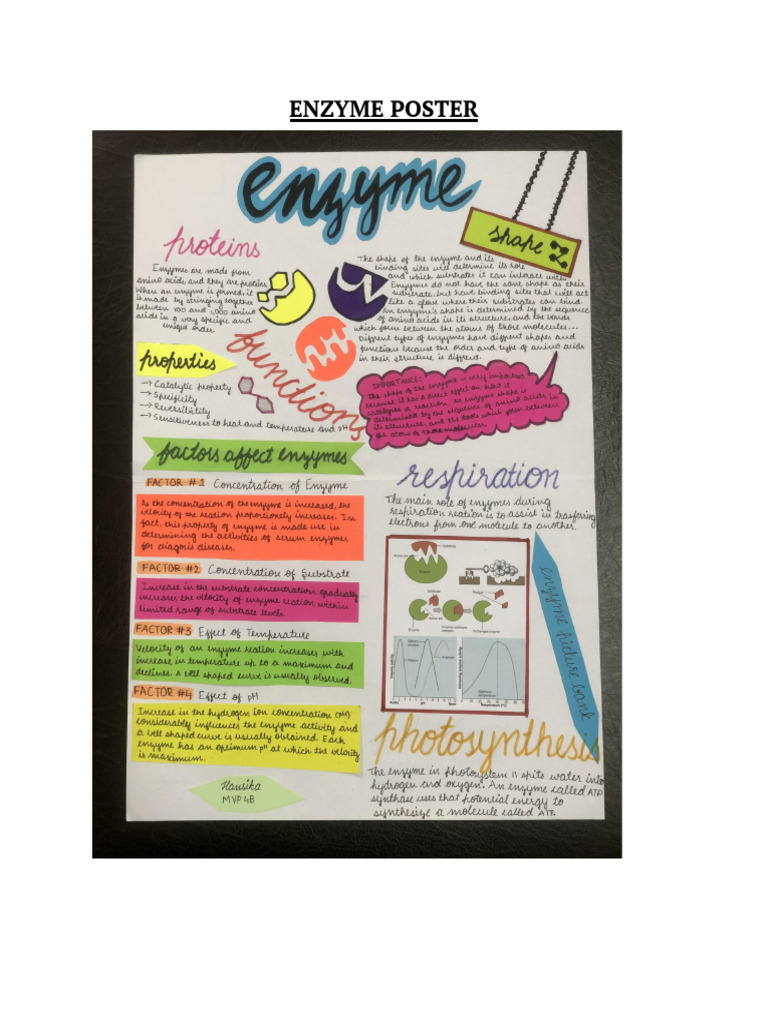 ENZYME POSTER
enzyme
shape
proteins
Enzymes are made from
amino acids and they are proteins
When an enzyme is formed, it
is made by stringing together
between 100 and 1,000 amino
acids in a very specific and
unique order.
The shape of the enzyme and its
binding sites will determine its role
and which substrates it can interact with
Enzymes do not have the same shape as their
substrate, but have binding sites that will act
like a glove where their substrates can bind.
An enzyme's shape is determined by the sequence
of amino acids in its structure, and the bonds
which form between the atoms of those molecules...
Different types of enzymes have different shapes and
function because the order and type of amino acids
in their structure is different.
functions
properties
→ Catalytic property
→ Specificity
→ Reversibility
→ Sensitiveness to heat and temperature and pH
IMPORTANCE:
The shape of the enzyme is very important
because it has a direct effect on how it
catalyzes a reaction. An enzymes shape is
determined by the sequence of amino acids in
its structure, and the bonds which form between
the atoms of those molecules.
factors affect enzymes
FACTOR #1 Concentration of Enzyme
As the concentration of the enzyme is increased, the
velocity of the reation proportionately increases. In
fact, this property of enzyme is made use in
determining the activities of serum enzymes
for diagosis diseases.
FACTOR #2 Concentration of Substrate
Increase in the substrate concentration gradually
increases the velocity of enzyme reation within
limited range of substrate levels.
FACTOR #3 Effect of Temperature
Velocity of an enzyme reation increases with
increase in temperature up to a maximum and
declines. A bell shaped curve is usually observed.
FACTOR #4 Effect of pH
Increase in the hydrogen ion concentration (pH)
considerably influences the enzyme activity and
a bell shaped curve is usually obtained. Each
enzyme has an optimum pH at which the velocity
is maximum.
Hansika
MYP 4B
respiration
The main role of enzymes during
respiration reation is to assist in trasfering
electrons from one molecule to another.
Enzyme
Substrate
Product
Active site
Enzyme
pH
Temperature (°C)
enzyme picture bank
photosynthesis
The enzyme in photosystem II spits water into
hydrogen and oxygen. An enzyme called ATP
synthase uses that potential energy to
synthesize a molecule called ATP.